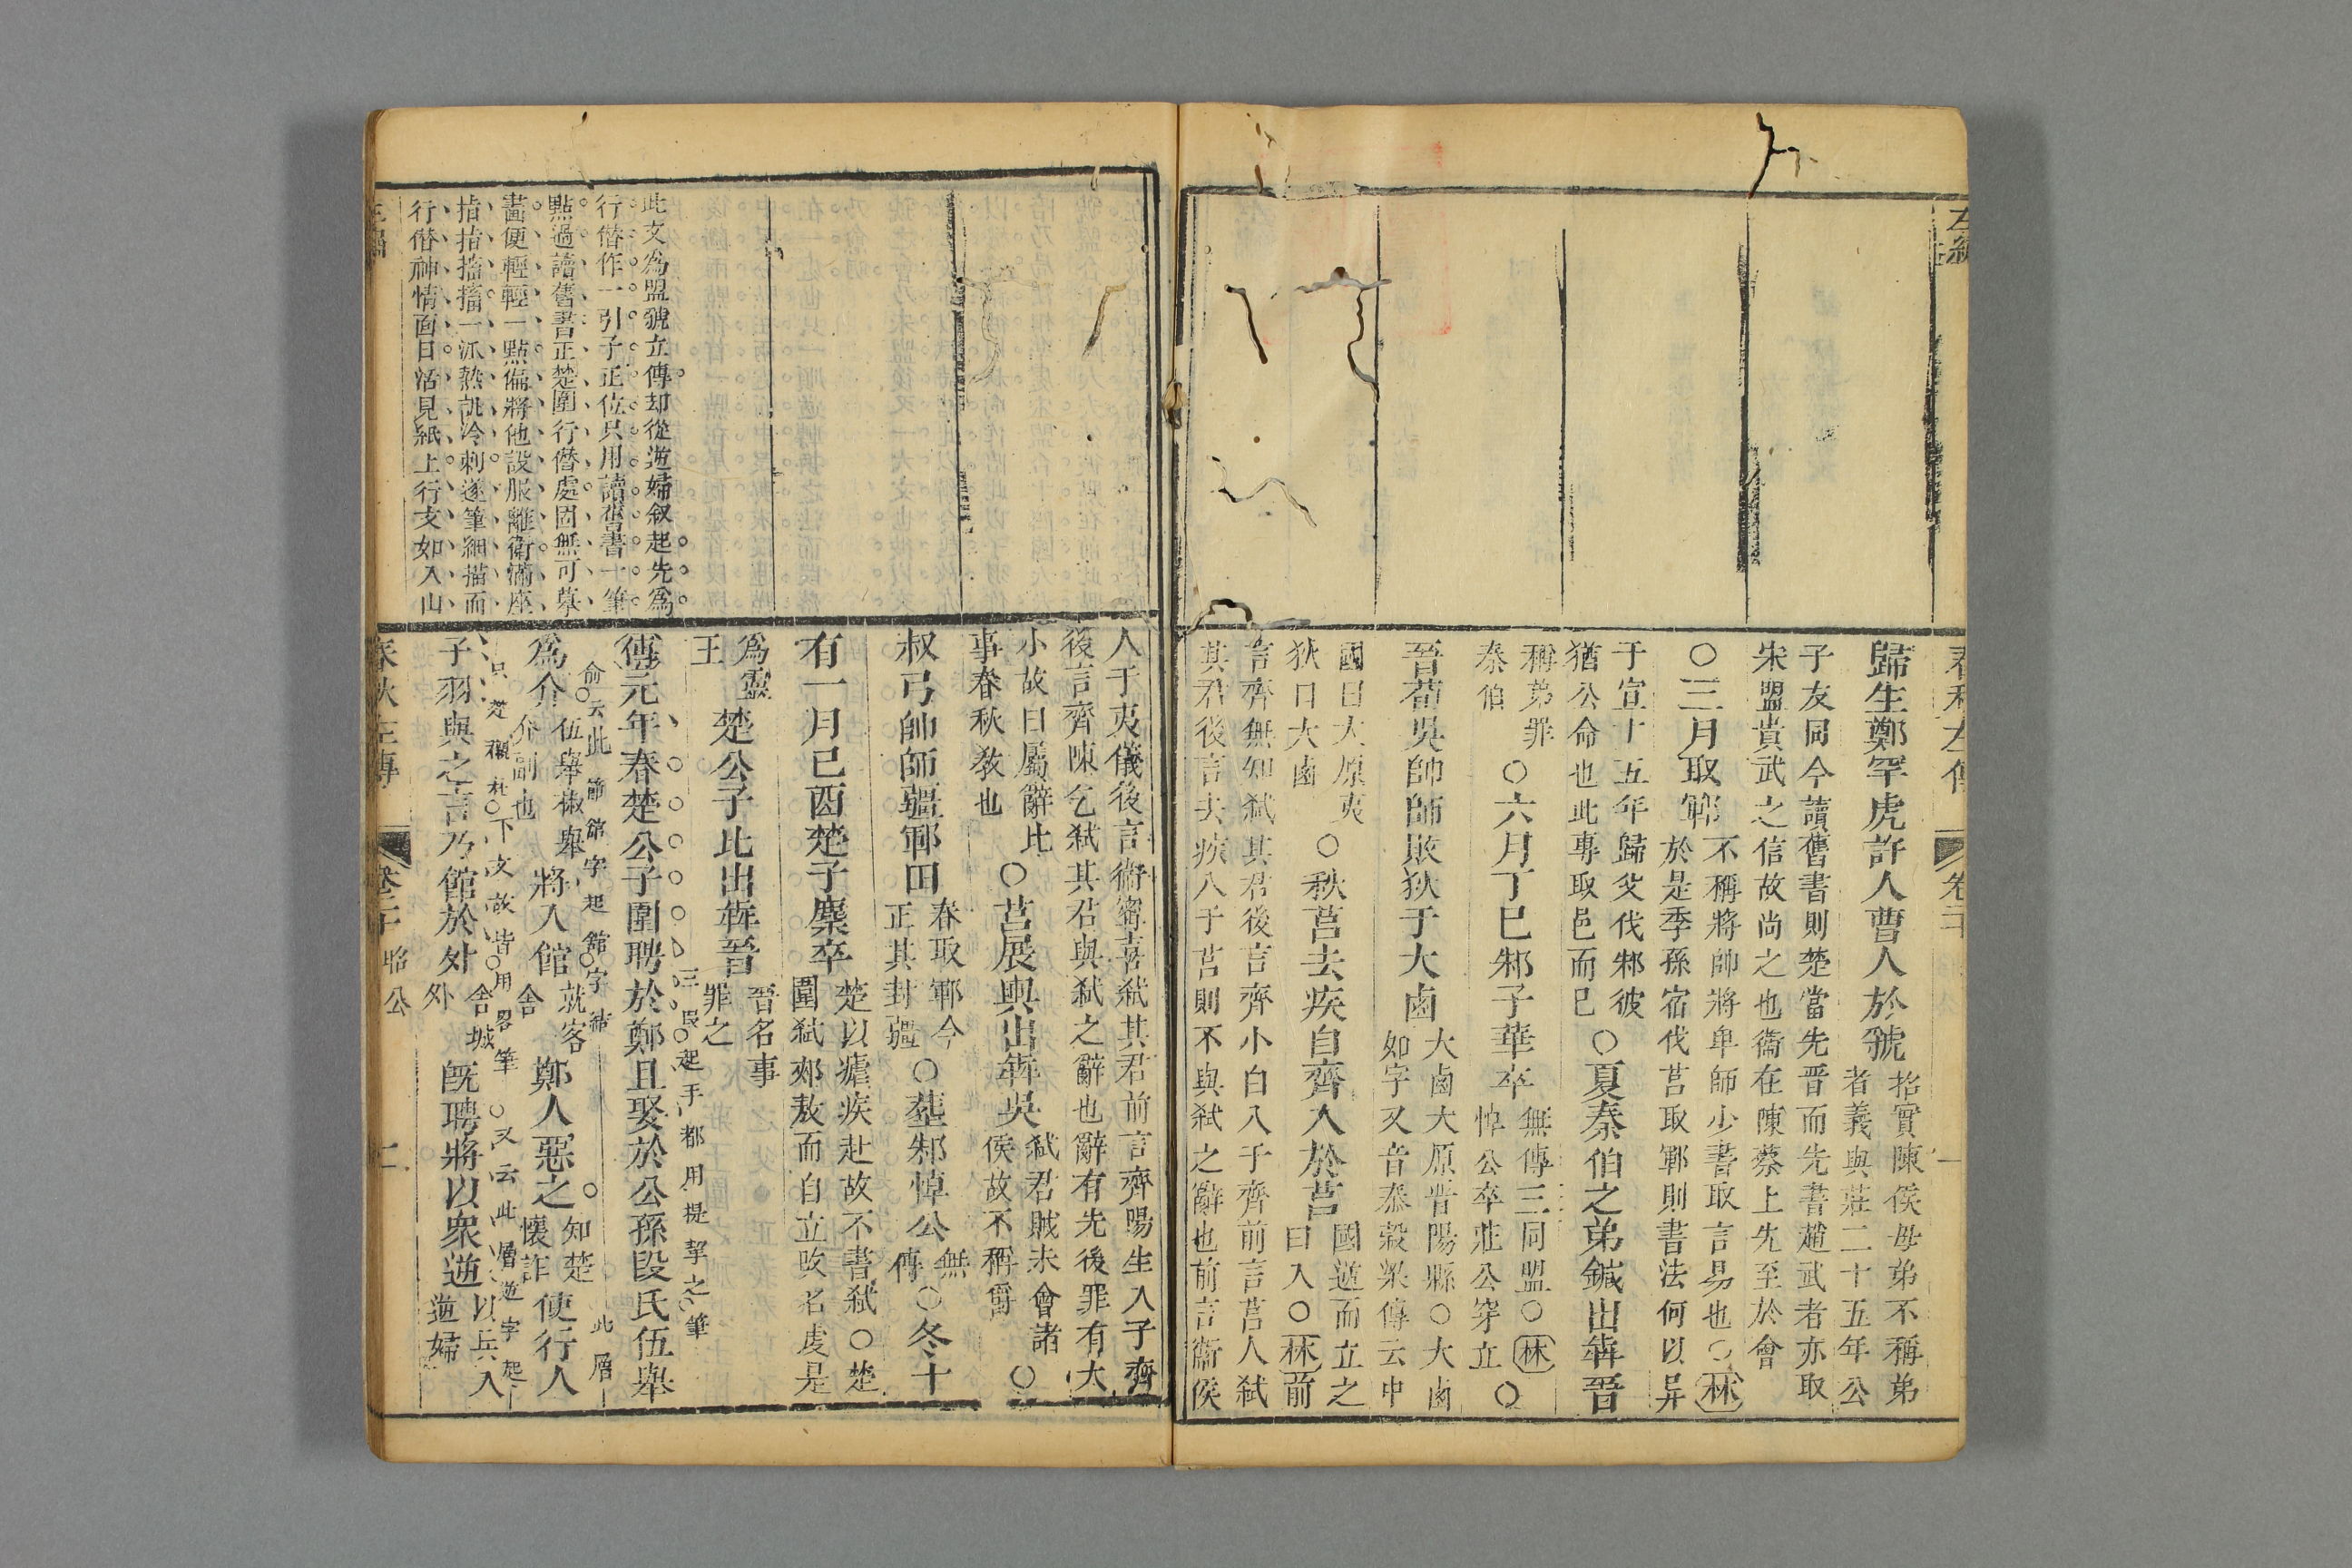 春秋左傳
卷二十
歸生鄭罕虎許人曹人於虢
招實陳侯母弟不稱弟
者義與莊二十五年公
子友同今讀舊書則楚當先晉而先書趙武者亦取
宋盟貴武之信故尚之也衞在陳蔡上先至於會
○三月取鄆
不稱將帥將卑師少書取言易也○林
於是季孫宿伐莒取鄆則書法何以异
于宣十五年歸父伐邾彼
猶公命也此專取邑而已
○夏秦伯之弟鍼出犇晉
稱弟罪
秦伯
○六月丁巳邾子華卒
無傳三同盟○林
悼公卒莊公穿立
○
晉荀吳帥師敗狄于大鹵
大鹵大原晉陽縣○大鹵
如字又音泰穀梁傳云中
國曰大原夷
狄曰大鹵
○秋莒去疾自齊入於莒
國逆而立之
曰入○林前
言齊無知弑其君後言齊小白入于齊前言莒人弑
其君後言去疾入于莒則不與弑之辭也前言衞侯
入于夷儀後言衞甯喜弑其君前言齊陽生入于齊
後言齊陳乞弑其君與弑之辭也辭有先後罪有大
小故曰屬辭比
事春秋教也
○莒展輿出犇吳
弑君賊未會諸
侯故不稱爵
○
叔弓帥師疆鄆田
春取鄆今
正其封疆
○葬邾悼公
無
傳
○冬十
有一月己酉楚子麇卒
楚以瘧疾赴故不書弑○楚
圍弑郟敖而自立改名虔是
為靈
王
楚公子比出犇晉
晉名事
罪之
三段起手都用提挈之筆
傳元年春楚公子圍聘於鄭且娶於公孫段氏伍舉
俞云此節館字起館字結
此層
為介
伍舉椒舉
介副也
將入館
就客
舍
鄭人惡之
知楚
懷詐
使行人
只楚襯托○下文故皆用畧筆
○又云此層逆字起
子羽與之言乃館於外
舍城
外
既聘將以衆逆
以兵入
逆婦
此文為盟虢立傳却從逆婦叙起先為
行僭作一引子正位只用讀舊書一筆
點過讀舊書正楚圍行僭處固無可摹
畫便輕輕一點偏將他設服離衛滿座
指指搐搐一派熱譏冷刺逐筆細描而
行僭神情面目活見紙上行文如入山
春秋左傳
卷二十
昭公